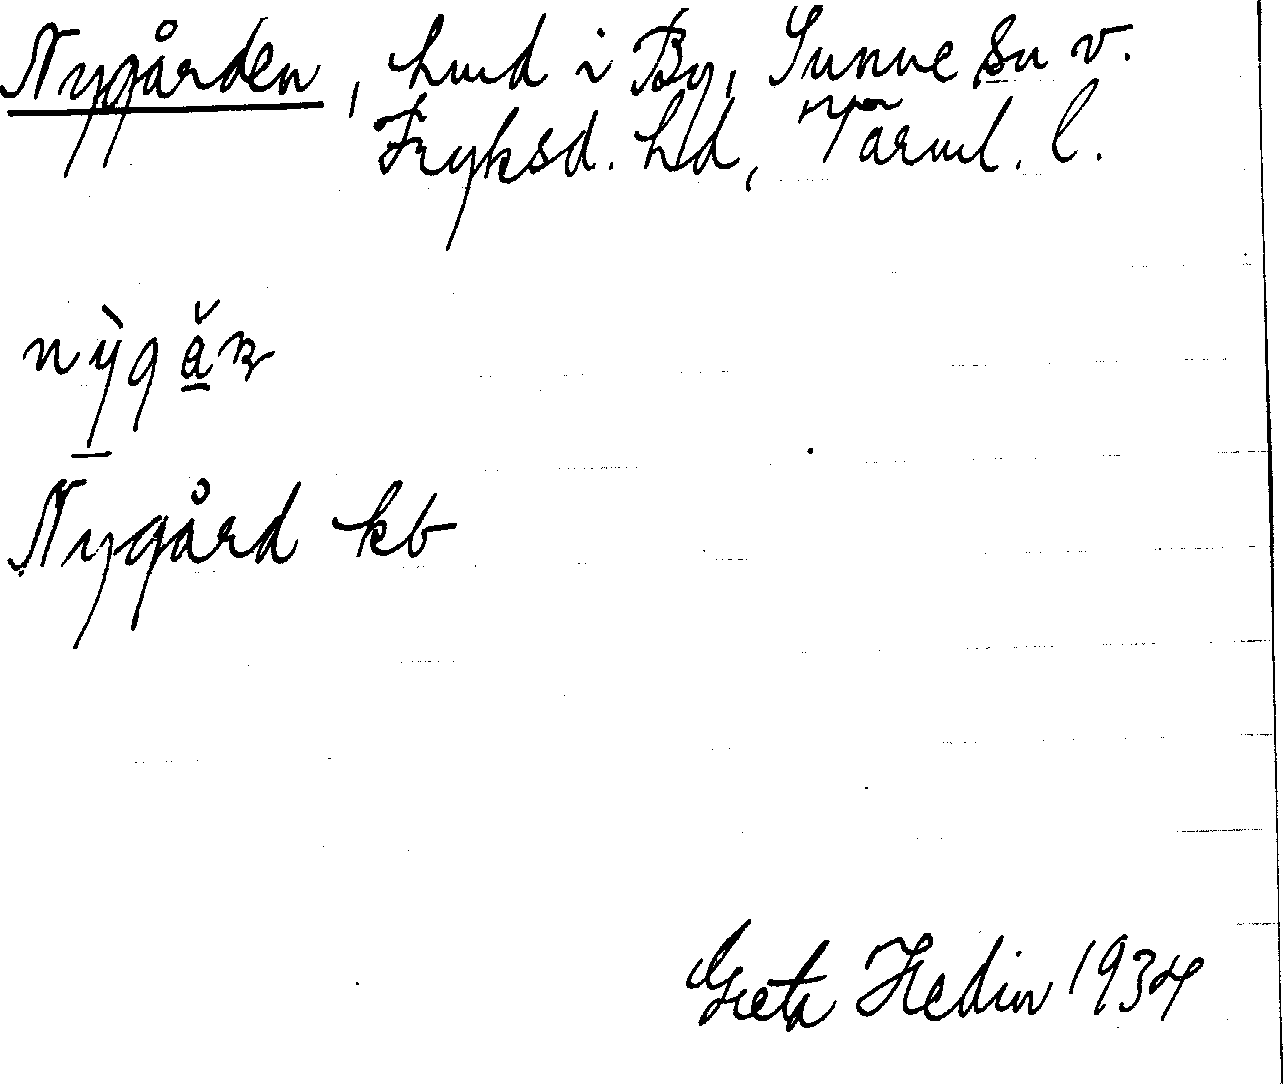 Nygården, hmd i By, Sunne sn v.
Fryksd. hd, Värml. l.
nỳgǎ̱ɳ
Nygård kb
Greta Hedin 1934